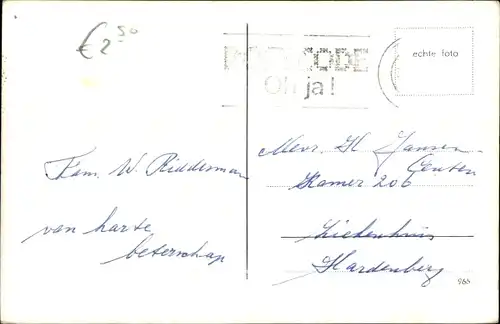 € 2,50
POSTCODE
Oh ja!
echte foto
Fam. W. Ridderman
van harte
beterschap
Mevr. H. Jansen-
Centen
Kamer 206
Ziekenhuis
Hardenberg